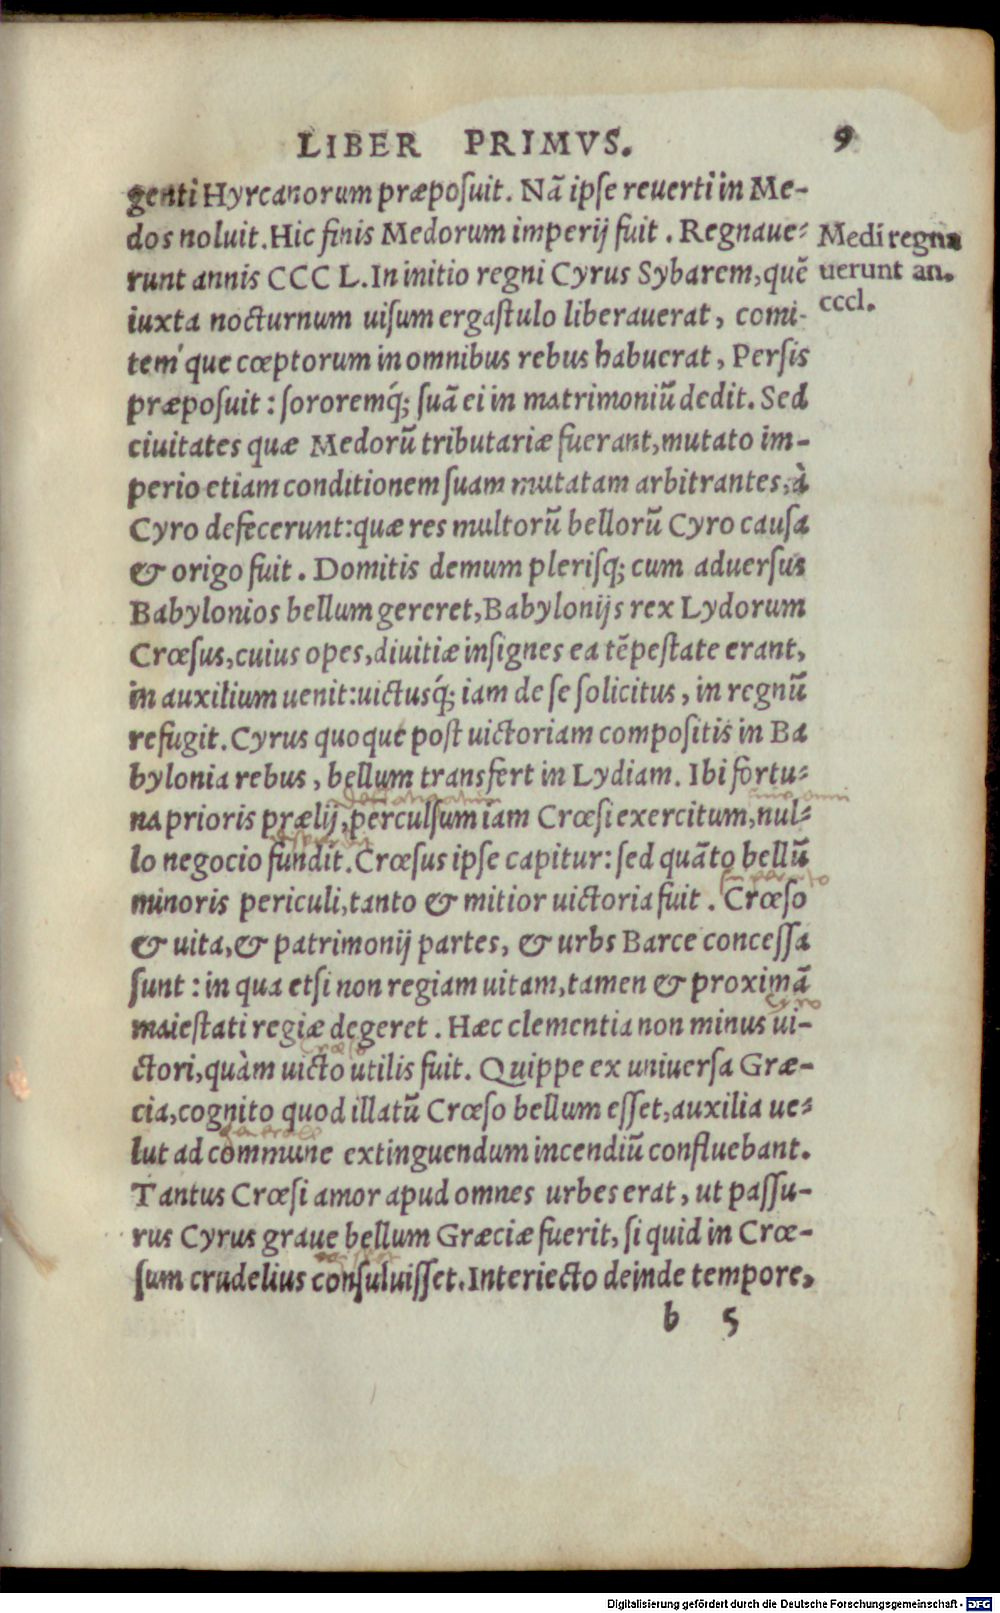 LIBER PRIMVS. 9
genti Hyrcanorum præposuit. Nã ipse reuerti in Me-
dos noluit. Hic finis Medorum imperij fuit. Regnaue-
Medi regna
runt annis CCC L. In initio regni Cyrus Sybarem, quẽ
uerunt an.
cccl.
iuxta nocturnum uisum ergastulo liberauerat, comi-
tem´que cœptorum in omnibus rebus habuerat, Persis
præposuit: sororemq́; suã ei in matrimoniũ dedit. Sed
ciuitates quæ Medorũ tributariæ fuerant, mutato im-
perio etiam conditionem suam mutatam arbitrantes, à
Cyro defecerunt: quæ res multorũ bellorũ Cyro causa
& origo fuit. Domitis demum plerisq; cum aduersus
Babylonios bellum gereret, Babylonijs rex Lydorum
Crœsus, cuius opes, diuitiæ insignes ea tẽpestate erant,
in auxilium uenit: uictusq́; iam de se solicitus, in regnũ
refugit. Cyrus quoque post uictoriam compositis in Ba
bylonia rebus, bellum transfert in Lydiam. Ibi fortu-
na prioris prælij, perculsum iam Crœsi exercitum, nul-
lo negocio fundit. Crœsus ipse capitur: sed quãto bellũ
minoris periculi, tanto & mitior uictoria fuit. Crœso
& uita, & patrimonij partes, & urbs Barce concessa
sunt: in qua etsi non regiam uitam, tamen & proximã
Cyro
maiestati regiæ degeret. Hæc clementia non minus ui-
Crœso
ctori, quàm uicto utilis fuit. Quippe ex uniuersa Græ-
cia, cognito quod illatũ Crœso bellum esset, auxilia ue-
generale
lut ad commune extinguendum incendiũ confluebant.
Tantus Crœsi amor apud omnes urbes erat, ut passu-
rus Cyrus graue bellum Græciæ fuerit, si quid in Crœ-
sum crudelius consuluisset. Interiecto deinde tempore,
b 5
Digitalisierung gefördert durch die Deutsche Forschungsgemeinschaft - DFG